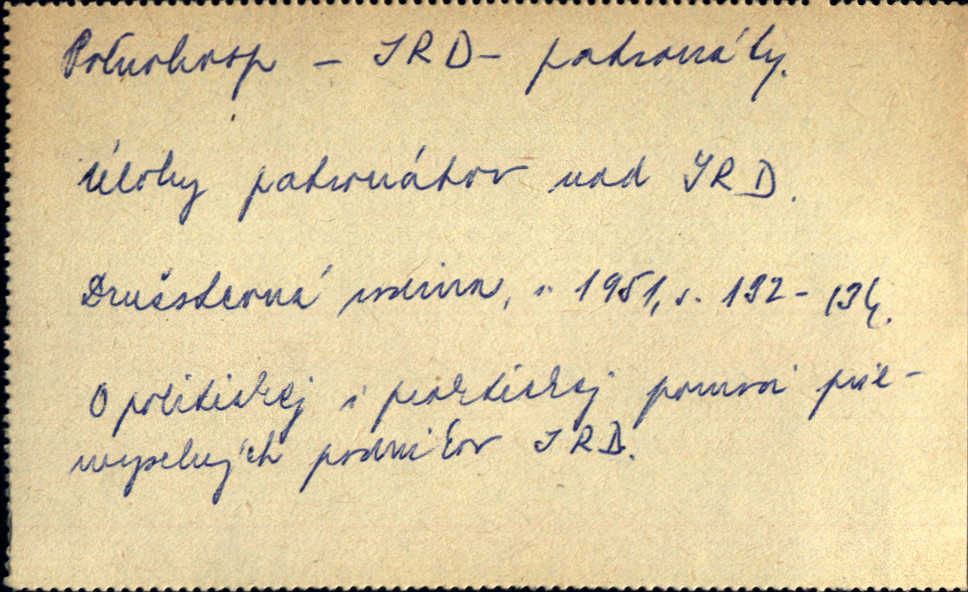 Poľnohosp – JRD – patronáty.
Úlohy patronátov nad JRD.
Družstevná rodina, r. 1951, s. 132-134.
O politickej i praktickej pomoci prie-
myselných podnikov JRD.